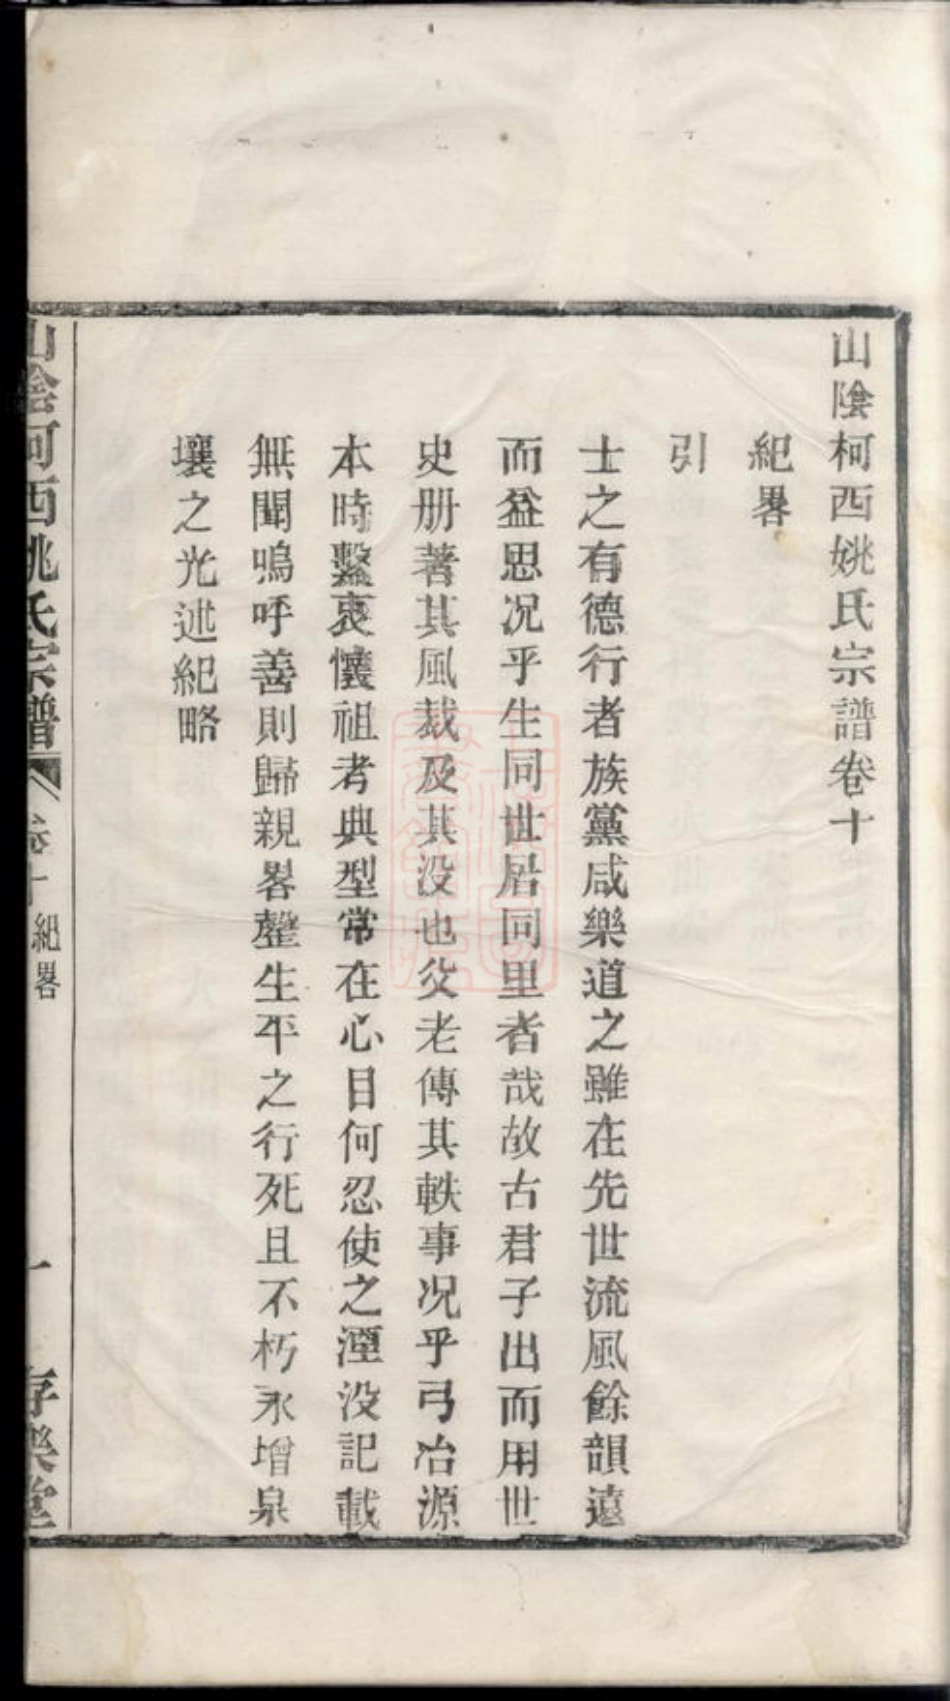 山陰柯西姚氏宗譜卷十
紀畧
引
士之有德行者族黨咸樂道之雖在先世流風餘韻遠
而益思况乎生同世居同里者哉故古君子出而用世
史册著其風裁及其没也父老傳其軼事况乎弓冶源
本時繫衷懷祖考典型常在心目何忍使之湮没記載
無聞嗚呼善則歸親畧舉生平之行死且不朽永增泉
壤之光述紀略
山陰柯西姚氏宗譜 卷十 紀畧 一 存樂堂